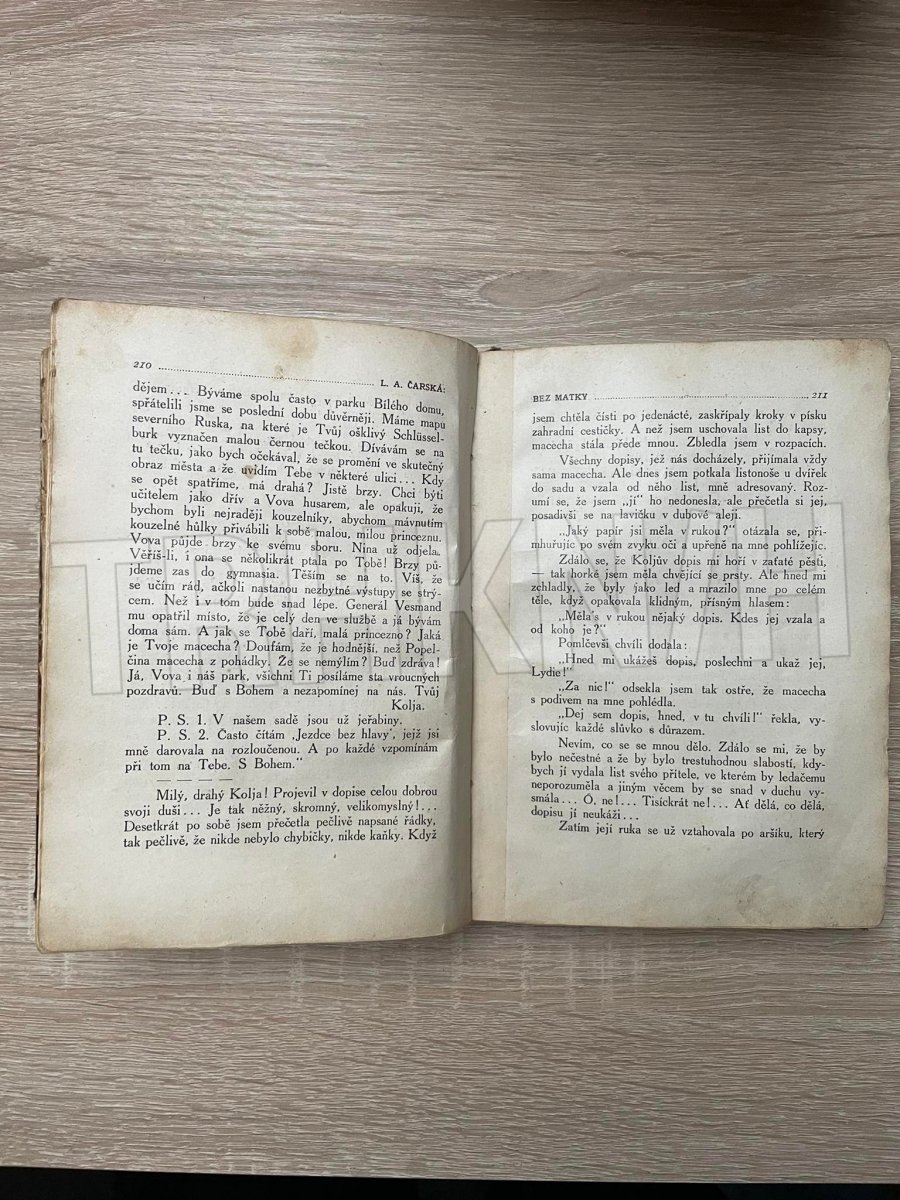 210
L. A. ČARSKÁ:
dějem... Býváme spolu často v parku Bílého domu,
spřátelili jsme se poslední dobu důvěrněji. Máme mapu
severního Ruska, na které je Tvůj ošklivý Schlüssel-
burk vyznačen malou černou tečkou. Dívávám se na
tu tečku, jako bych očekával, že se promění ve skutečný
obraz města a že uvidím Tebe v některé ulici... Kdy
se opět spatříme, má drahá? Jistě brzy. Chci býti
učitelem jako dřív a Vova husarem, ale opakuji, že
bychom byli nejraději kouzelníky, abychom mávnutím
kouzelné hůlky přivábili k sobě malou, milou princeznu.
Vova půjde brzy ke svému sboru. Nina už odjela.
Věříš-li, i ona se několikrát ptala po Tobě! Brzy pů-
jdeme zas do gymnasia. Těším se na to. Víš, že
se učím rád, ačkoli nastanou nezbytné výstupy se strý-
cem. Než i v tom bude snad lépe. Generál Vesmand
mu opatřil místo, že je celý den ve službě a já bývám
doma sám. A jak se Tobě daří, malá princezno? Jaká
je Tvoje macecha? Doufám, že je hodnější, než Popel-
čina macecha z pohádky. Že se nemýlím? Buď zdráva!
Já, Vova i náš park, všichni Ti posíláme sta vroucných
pozdravů. Buď s Bohem a nezapomínej na nás. Tvůj
Kolja.
P. S. 1. V našem sadě jsou už jeřabiny.
P. S. 2. Často čítám ‚Jezdce bez hlavy‘, jejž jsi
mně darovala na rozloučenou. A po každé vzpomínám
při tom na Tebe. S Bohem.“
— — — —
Milý, drahý Kolja! Projevil v dopise celou dobrou
svoji duši... Je tak něžný, skromný, velikomyslný!...
Desetkrát po sobě jsem přečetla pečlivě napsané řádky,
tak pečlivě, že nikde nebylo chybičky, nikde kaňky. Když
BEZ MATKY
211
jsem chtěla čísti po jedenácté, zaskřípaly kroky v písku
zahradní cestičky. A než jsem uschovala list do kapsy,
macecha stála přede mnou. Zbledla jsem v rozpacích.
Všechny dopisy, jež nás docházely, přijímala vždy
sama macecha. Ale dnes jsem potkala listonoše u dvířek
do sadu a vzala od něho list, mně adresovaný. Rozu-
mí se, že jsem „jí“ ho nedonesla, ale přečetla si jej,
posadivši se na lavičku v dubové aleji.
„Jaký papír jsi měla v rukou?“ otázala se, při-
mhuřujíc po svém zvyku oči a upřeně na mne pohlížejíc.
Zdálo se, že Koljův dopis mi hoří v zaťaté pěsti,
— tak horké jsem měla chvějící se prsty. Ale hned mi
zchladly, že byly jako led a mrazilo mne po celém
těle, když opakovala klidným, přísným hlasem:
„Měla's v rukou nějaký dopis. Kdes jej vzala a
od koho je?“
Pomlčevši chvíli dodala:
„Hned mi ukážeš dopis, poslechni a ukaž jej,
Lydie!“
„Za nic!“ odsekla jsem tak ostře, že macecha
s podivem na mne pohlédla.
„Dej sem dopis, hned, v tu chvíli!“ řekla, vy-
slovujíc každé slůvko s důrazem.
Nevím, co se se mnou dělo. Zdálo se mi, že by
bylo nečestné a že by bylo trestuhodnou slabostí, kdy-
bych jí vydala list svého přítele, ve kterém by ledačemu
neporozuměla a jiným věcem by se snad v duchu vy-
smála... Ó, ne!... Tisíckrát ne!... Ať dělá, co dělá,
dopisu jí neukáži...
Zatím její ruka se už vztahovala po aršíku, který
TRHKNIH